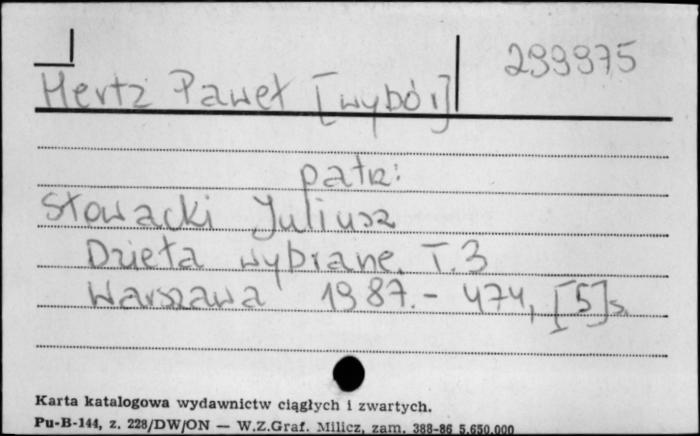 299975
Hertz Paweł [wybór]
patrz:
Słowacki Juliusz
Dzieła wybrane. T.3
Warszawa 1987.- 474, [5]s.
Karta katalogowa wydawnictw ciągłych i zwartych.
Pu-B-144, z. 228/DW/ON — W.Z.Graf. Milicz, zam. 388-86 5.650.000